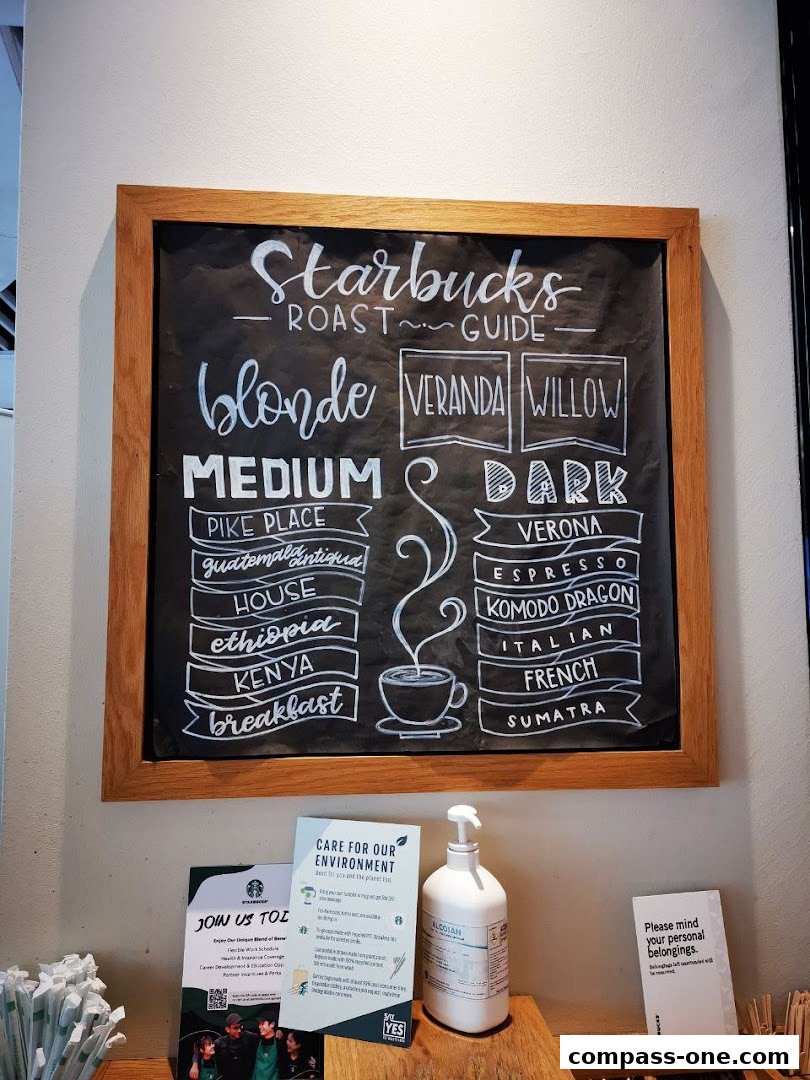 Starbucks
ROAST GUIDE
blonde
VERANDA
WILLOW
MEDIUM
PIKE PLACE
guatemala antiqua
HOUSE
ethiopia
KENYA
breakfast
DARK
VERONA
ESPRESSO
KOMODO DRAGON
ITALIAN
FRENCH
SUMATRA
STARBUCKS
JOIN US TOD
Enjoy Our Unique Blend of Bene
Flexible Work Schedule
Health & Insurance Coverage
Career Development & Education Opp
Partner Incentives & Perks
CARE FOR OUR
ENVIRONMENT
Good for you and the planet too.
SAY
YES
ALCOSAN
Please mind
your personal
belongings.
Belongings left unattended will
be removed.
compass-one.com